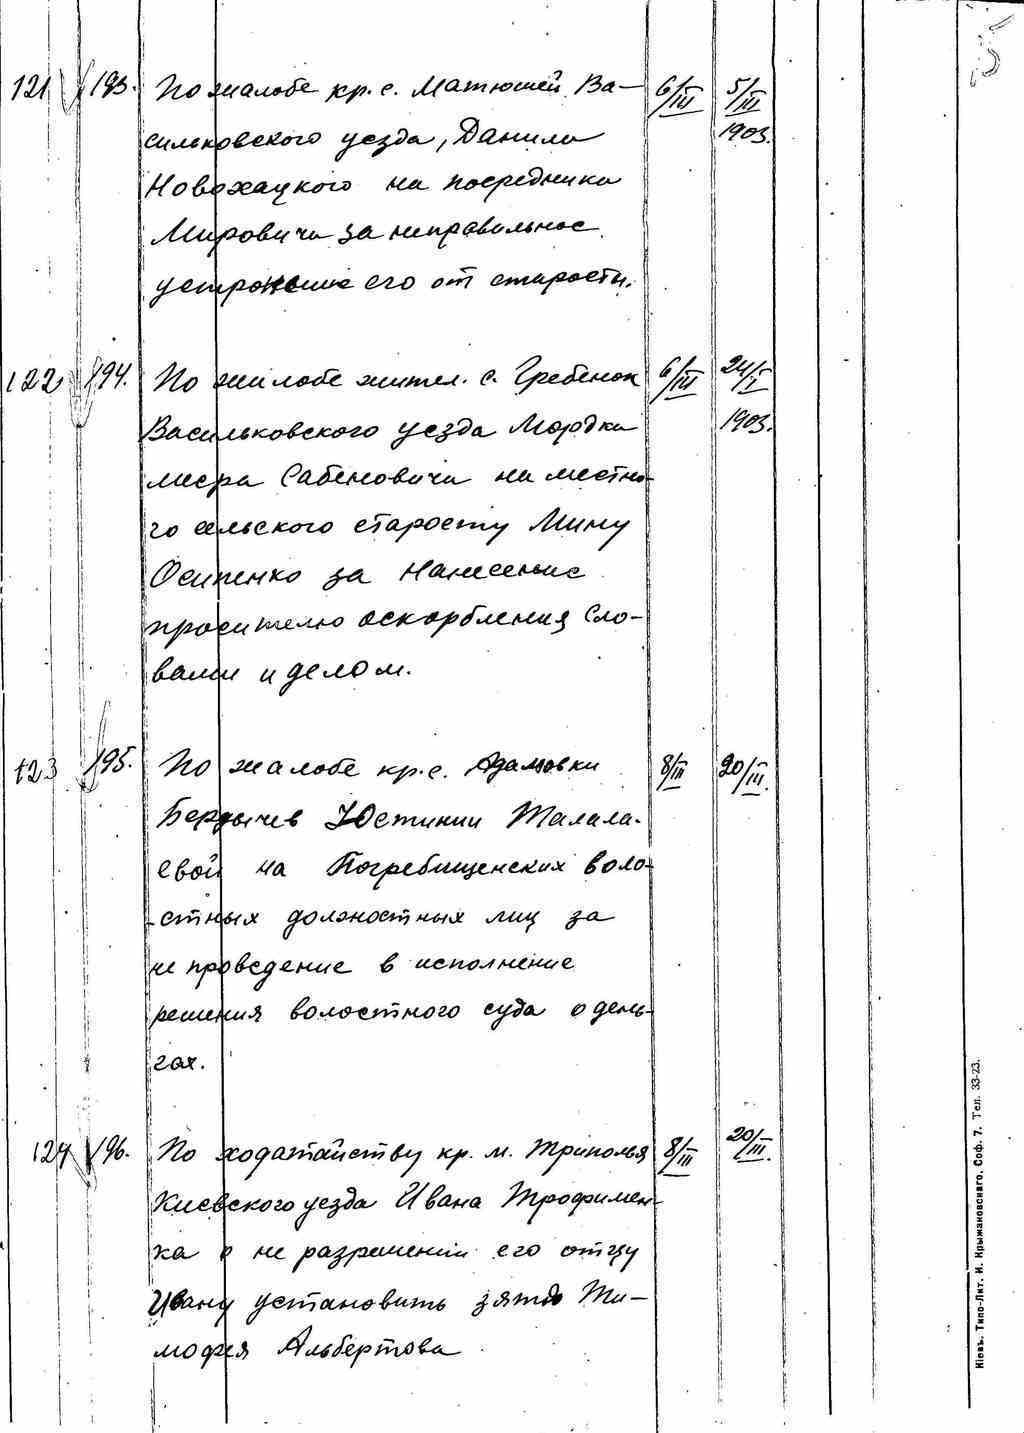 121 193. По жалобе кр. с. Матюшей Ва- 6/III 5/III
сильковского уезда, Данила 1903.
Новохацкого на посредника
Мировича за неправильное
устранение его от старосты.
122 194. По жалобе жител. с. Гребенок 6/III 24/I
Васильковского уезда Мордка 1903.
Сабеновича на местно-
го сельского старосту Мину
Осипенко за нанесение
просителю оскорбления сло-
вами и делом.
123 195. По жалобе кр. с. Адамовки 8/III 20/III.
Бердычев Юстинии Талала-
евой на Погребищенских воло-
стных должностных лиц за
не проведение в исполнение
решения волостного суда о день-
гах.
124 196. По ходатайству кр. м. Триполья 8/III 20/III.
Киевского уезда Ивана Трофимен-
ка о не разрешении его отцу
Ивану установить зятьо Ти-
мофея Альбертова
Кіевъ. Типо-Лит. И. Крыжановскаго. Соф. 7. Тел. 33-23.